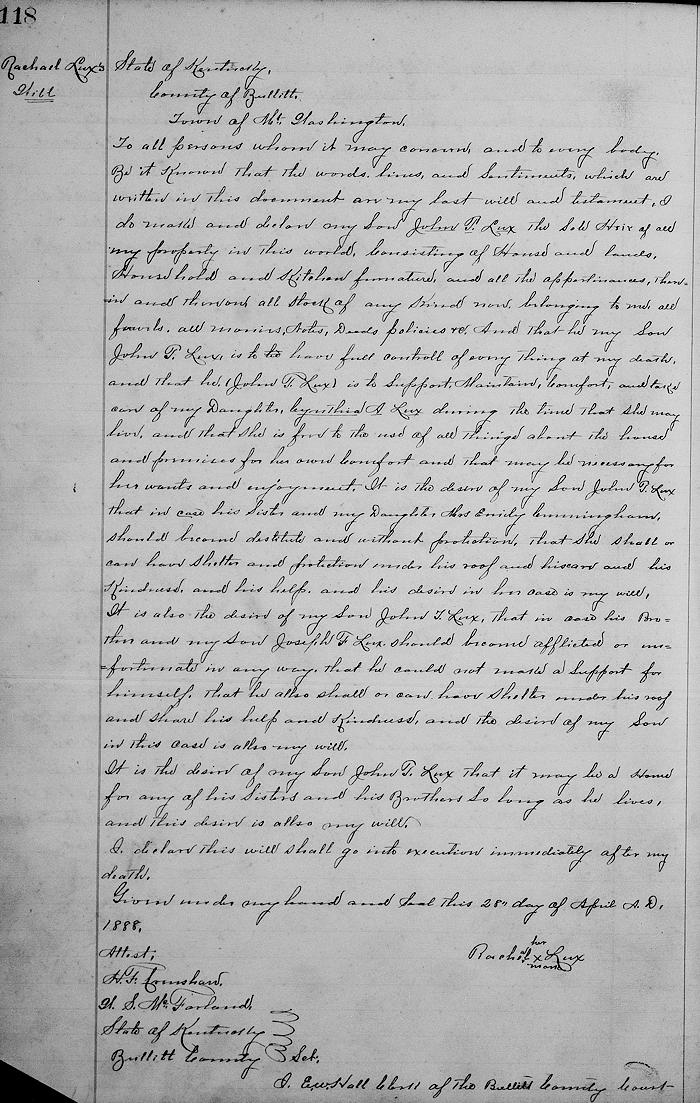 118
Rachael Lux's
Will
State of Kentucky,
County of Bullitt,
Town of Mt. Washington,
To all persons whom it may concern, and to every body.
Be it Known that the words, lines, and Sentiments, which are
written in this document are my last will and testament, I
do make and declare my Son John T. Lux the Sole Heir of all
my property in this world, Consisting of House and lands,
Household and Kitchen furnature, and all the appertinances, there=
in and thereon, all Stock of any Kind now, belonging to me, all
fowels. all monies, Notes, Deeds policies &c. And that he my Son
John T. Lux, is to to have full controll of every thing at my death,
and that he, (John T. Lux) is to Support, Maintain, Comfort, and take
care of my Daughter, Cynthia A Lux during the time that She may
live, and that She is free to the use of all things about the house
and premises for her own Comfort and that may be necessary for
her wants and enjoyment, It is the desire of my Son John T. Lux
that in case his Sister and my Daughter Mrs Emily Cunningham,
Should become destitute and without protection, that She Shall or
can have Shelter and protection under his roof and his care and his
Kindness, and his help. and his desire in her case is my will,
It is also the desire of my Son John T. Lux, that in case his Bro=
ther and my Son Joseph F Lux. should become afflicted or un=
=fortunate in any way. that he could not make a Support for
himself. that he also shall or can have Shelter under his roof
and share his help and Kindness, and the desire of my Son
in this case is allso my will.
It is the desire of my Son John T. Lux that it may be a Home
for any of his Sisters and his Brothers So long as he lives,
and this desire is allso my will.
I. declare this will shall go into execution immediately after my
death.
Given under my hand and Seal this 28" day of April A. D.
1888.
Attest,
her
Rachel x Lux
mark
H. F. Crenshaw.
W. S. McFarland.
State of Kentucky
Bullitt County Sct.
I. E. W. Hall Clerk of the Bullitt County Court